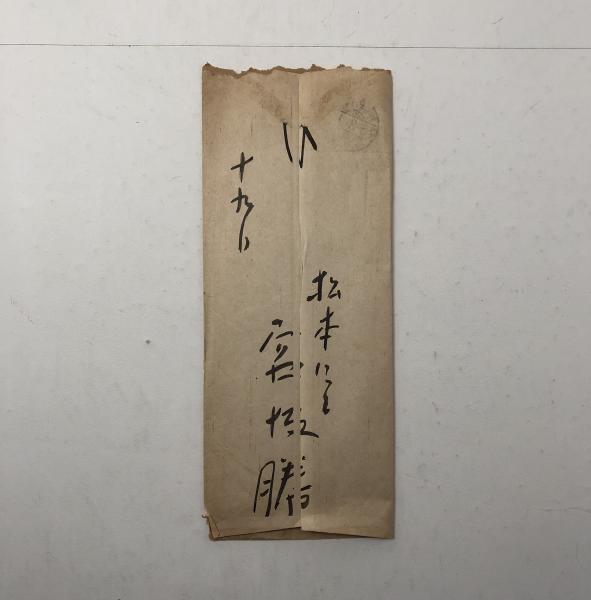 松本にて
宮坂勝
十九日